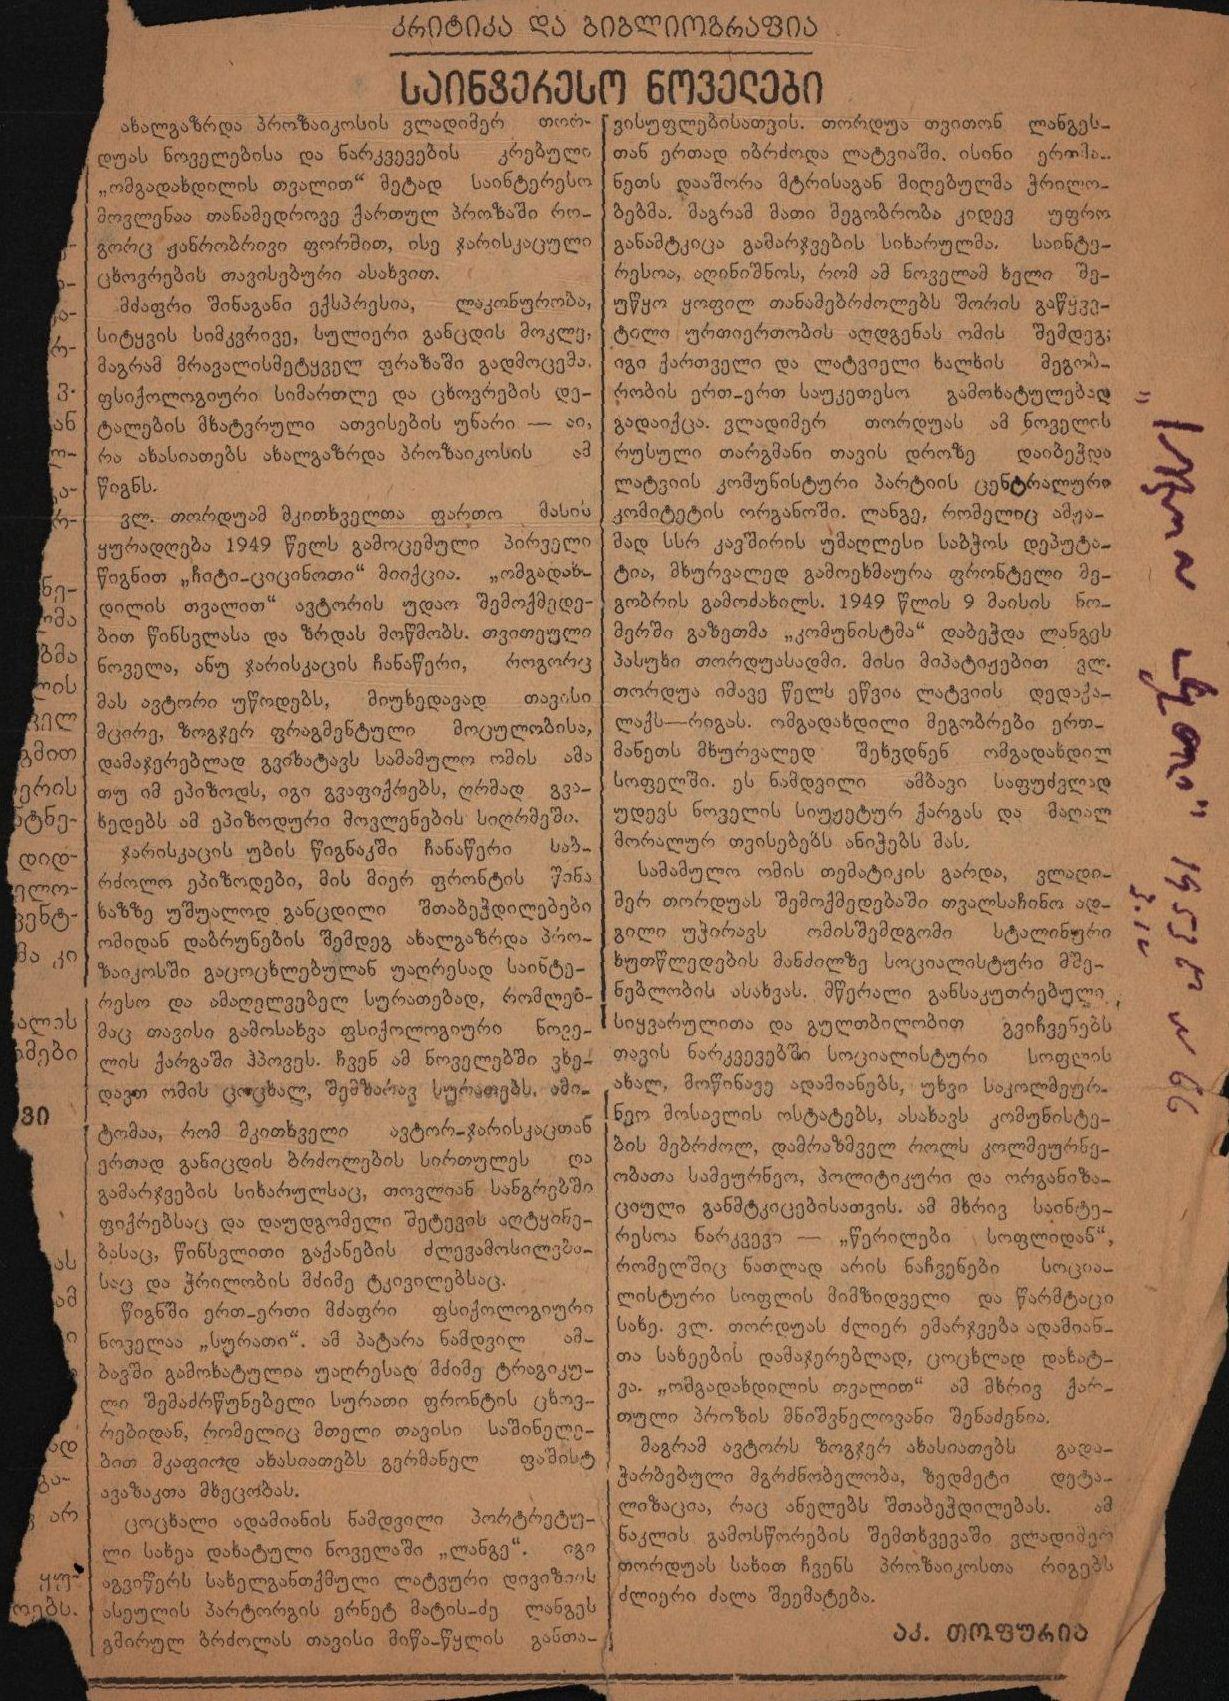 კრიტიკა და ბიბლიოგრაფია
საინტერესო ნოველები
ახალგაზრდა პროზაიკოსის ვლადიმერ თორ-
დუას ნოველებისა და ნარკვევების კრებული
„ომგადახდილის თვალით“ მეტად საინტერესო
მოვლენაა თანამედროვე ქართულ პროზაში რო-
გორც ჟანრობრივი ფორმით, ისე ჯარისკაცული
ცხოვრების თავისებური ასახვით.
მძაფრი შინაგანი ექსპრესია, ლაკონურობა,
სიტყვის სიმკვრივე, სულიერი განცდის მოკლე,
მაგრამ მრავალისმეტყველ ფრაზაში გადმოცემა.
ფსიქოლოგიური სიმართლე და ცხოვრების დე-
ტალების მხატვრული ათვისების უნარი — აი,
რა ახასიათებს ახალგაზრდა პროზაიკოსის ამ
წიგნს.
ვლ. თორდუამ მკითხველთა ფართო მასის
ყურადღება 1949 წელს გამოცემული პირველი
წიგნით „ჩიტი-ციცინოთი“ მიიქცია. „ომგადახ-
დილის თვალით“ ავტორის უდაო შემოქმედე-
ბით წინსვლასა და ზრდას მოწმობს. თვითეული
ნოველა, ანუ ჯარისკაცის ჩანაწერი, როგორც
მას ავტორი უწოდებს, მიუხედავად თავისი
მცირე, ზოგჯერ ფრაგმენტული მოცულობისა,
დამაჯერებლად გვიხატავს სამამულო ომის ამა
თუ იმ ეპიზოდს, იგი გვაფიქრებს, ღრმად გვა-
ხედებს ამ ეპიზოდური მოვლენების სიღრმეში.
ჯარისკაცის უბის წიგნაკში ჩანაწერი საბ-
რძოლო ეპიზოდები, მის მიერ ფრონტის წინა
ხაზზე უშუალოდ განცდილი შთაბეჭდილებები
ომიდან დაბრუნების შემდეგ ახალგაზრდა პრო-
ზაიკოსში გაცოცხლებულან უაღრესად საინტე-
რესო და ამაღელვებელ სურათებად, რომლებ-
მაც თავისი გამოსახვა ფსიქოლოგიური ნოვე-
ლის ქარგაში ჰპოვეს. ჩვენ ამ ნოველებში ვხე-
დავთ ომის ცოცხალ, შემზარავ სურათებს. ამი-
ტომაა, რომ მკითხველი ავტორ-ჯარისკაცთან
ერთად განიცდის ბრძოლების სირთულეს და
გამარჯვების სიხარულსაც, თოვლიან სანგრებში
ფიქრებსაც და დაუდგომელი შეტევის აღტყინე-
ბასაც, წინსვლითი გაქანების ძლევამოსილება-
საც და ჭრილობის მძიმე ტკივილებსაც.
წიგნში ერთ-ერთი მძაფრი ფსიქოლოგიური
ნოველაა „სურათი“. ამ პატარა ნამდვილ ამ-
ბავში გამოხატულია უაღრესად მძიმე ტრაგიკუ-
ლი შემაძრწუნებელი სურათი ფრონტის ცხოვ-
რებიდან, რომელიც მთელი თავისი საშინელე-
ბით მკაფიოდ ახასიათებს გერმანელ ფაშისტ
ავაზაკთა მხეცობას.
ცოცხალი ადამიანის ნამდვილი პორტრეტუ-
ლი სახეა დახატული ნოველაში „ლანგე“. იგი
აგვიწერს სახელგანთქმული ლატვური დივიზიის
ასეულის პარტორგის ერნეტ მატის-ძე ლანგეს
გმირულ ბრძოლას თავისი მიწა-წყლის განთა-
ვისუფლებისათვის. თორდუა თვითონ ლანგეს-
თან ერთად იბრძოდა ლატვიაში. ისინი ერთმა-
ნეთს დააშორა მტრისაგან მიღებულმა ჭრილო-
ბებმა. მაგრამ მათი მეგობრობა კიდევ უფრო
განამტკიცა გამარჯვების სიხარულმა. საინტე-
რესოა, აღინიშნოს, რომ ამ ნოველამ ხელი შე-
უწყო ყოფილ თანამებრძოლებს შორის გაწყვე-
ტილი ურთიერთობის აღდგენას ომის შემდეგ;
იგი ქართველი და ლატვიელი ხალხის მეგობ-
რობის ერთ-ერთ საუკეთესო გამოხატულებად
გადაიქცა. ვლადიმერ თორდუას ამ ნოველის
რუსული თარგმანი თავის დროზე დაიბეჭდა
ლატვიის კომუნისტური პარტიის ცენტრალური
კომიტეტის ორგანოში. ლანგე, რომელიც ამჟა-
მად სსრ კავშირის უმაღლესი საბჭოს დეპუტა-
ტია, მხურვალედ გამოეხმაურა ფრონტელი მე-
გობრის გამოძახილს. 1949 წლის 9 მაისის ნო-
მერში გაზეთმა „კომუნისტმა“ დაბეჭდა ლანგეს
პასუხი თორდუასადმი. მისი მიპატიჟებით ვლ.
თორდუა იმავე წელს ეწვია ლატვიის დედაქა-
ლაქს—რიგას. ომგადახდილი მეგობრები ერთ-
მანეთს მხურვალედ შეხვდნენ ომგადახდილ
სოფელში. ეს ნამდვილი ამბავი საფუძვლად
უდევს ნოველის სიუჟეტურ ქარგას და მაღალ
მორალურ თვისებებს ანიჭებს მას.
სამამულო ომის თემატიკის გარდა, ვლადი-
მერ თორდუას შემოქმედებაში თვალსაჩინო ად-
გილი უჭირავს ომისშემდგომი სტალინური
ხუთწლედების მანძილზე სოციალისტური მშე-
ნებლობის ასახვას. მწერალი განსაკუთრებული
სიყვარულითა და გულთბილობით გვიჩვენებს
თავის ნარკვევებში სოციალისტური სოფლის
ახალ, მოწინავე ადამიანებს, უხვი საკოლმეურ-
ნეო მოსავლის ოსტატებს, ასახავს კომუნისტე-
ბის მებრძოლ, დამრაზმველ როლს კოლმეურნე-
ობათა სამეურნეო, პოლიტიკური და ორგანიზა-
ციული განმტკიცებისათვის. ამ მხრივ საინტე-
რესოა ნარკვევი — „წერილები სოფლიდან“,
რომელშიც ნათლად არის ნაჩვენები სოცია-
ლისტური სოფლის მიმზიდველი და წარმტაცი
სახე. ვლ. თორდუას ძლიერ ემარჯვება ადამიან-
თა სახეების დამაჯერებლად, ცოცხლად დახატ-
ვა. „ომგადახდილის თვალით“ ამ მხრივ ქარ-
თული პროზის მნიშვნელოვანი შენაძენია.
მაგრამ ავტორს ზოგჯერ ახასიათებს გადა-
ჭარბებული მგრძნობელობა, ზედმეტი დეტა-
ლიზაცია, რაც ანელებს შთაბეჭდილებას. ამ
ნაკლის გამოსწორების შემთხვევაში ვლადიმერ
თორდუას სახით ჩვენს პროზაიკოსთა რიგებს
ძლიერი ძალა შეემატება.
აკ. თოფურია